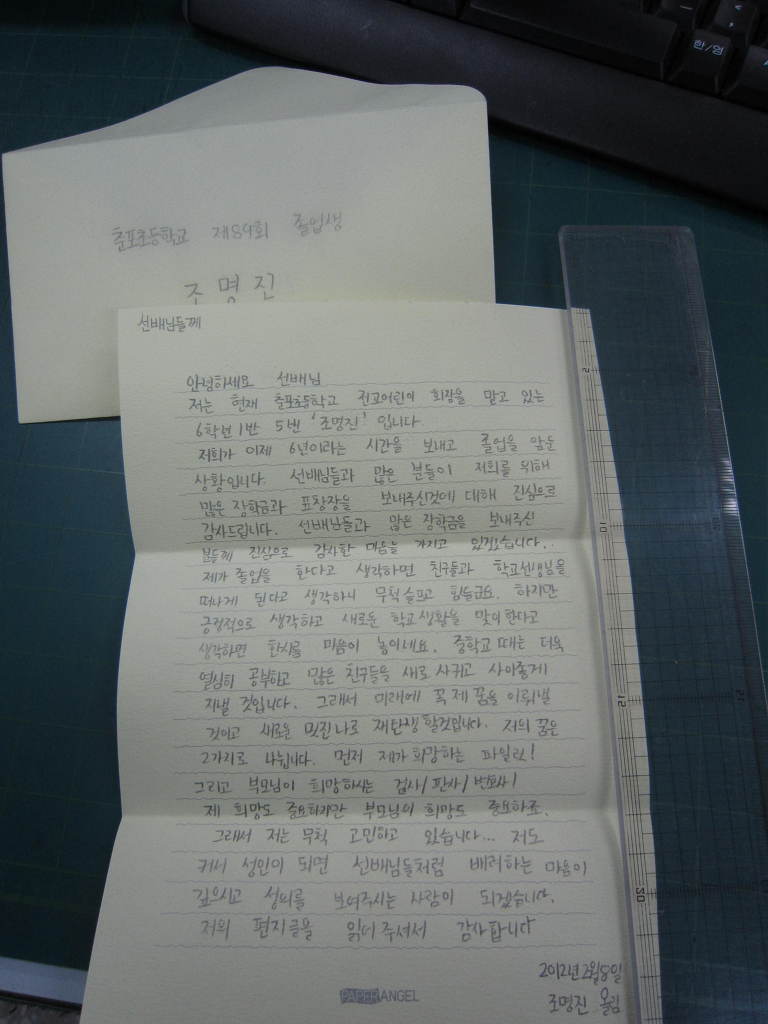 한/영
춘포초등학교 제89회 졸업생
조명진
선배님들께
안녕하세요 선배님
저는 현재 춘포초등학교 전교어린이 회장을 맡고 있는
6학년 1반 5번 '조명진' 입니다
저희가 이제 6년이라는 시간을 보내고 졸업을 앞둔
상황입니다. 선배님들과 많은 분들이 저희를 위해
많은 장학금과 표창장을 보내주신것에 대해 진심으로
감사드립니다. 선배님들과 많은 장학금을 보내주신
분들께 진심으로 감사한 마음을 가지고 있겠습니다..
제가 졸업을 한다고 생각하면 친구들과 학교선생님을
떠나게 된다고 생각하니 무척 슬프고 힘들군요. 하지만
긍정적으로 생각하고 새로운 학교생활을 맞이한다고
생각하면 한시름 마음이 놓이네요. 중학교 때는 더욱
열심히 공부하고 많은 친구들을 새로 사귀고 사이좋게
지낼 것입니다. 그래서 미래에 꼭 제 꿈을 이뤄낼
것이고 새로운 멋진나로 재탄생 할것입니다. 저의 꿈은
2가지로 나뉩니다. 먼저 제가 희망하는 파일럿!
그리고 부모님이 희망하시는 검사/판사/변호사!
제 희망도 중요하지만 부모님의 희망도 중요하죠.
그래서 저는 무척 고민하고 있습니다... 저도
커서 성인이 되면 선배님들처럼 배려하는 마음이
깊으시고 성의를 보여주시는 사람이 되겠습니다.
저의 편지글을 읽어주셔서 감사합니다
2012년 2월 8일
조명진 올림
PAPER ANGEL